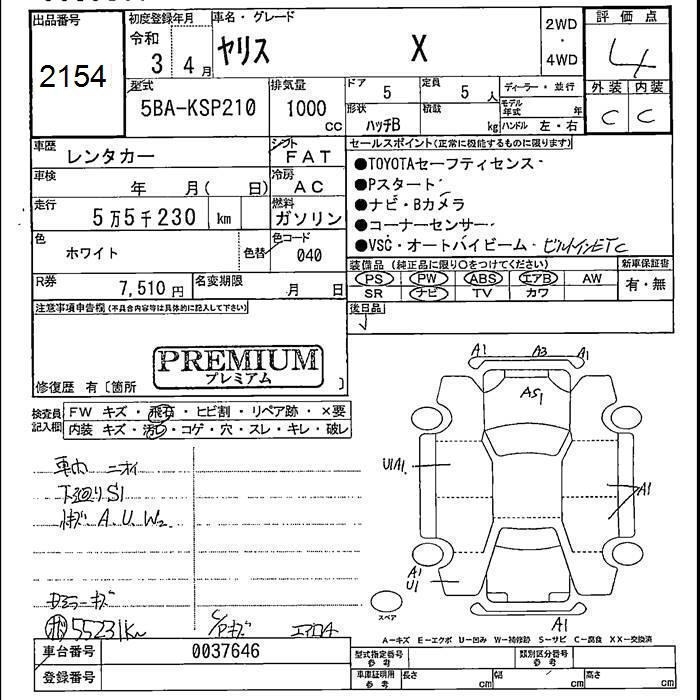 出品番号
2154
初度登録年月
令和 3 年 4 月
車名・グレード
ヤリス X
2WD
・
4WD
評価点
4
外装 内装
C C
型式
5BA-KSP210
排気量
1000 cc
ドア 5
定員 5 人
形状 ハッチB
積載 kg
ディーラー・並行
モデル年式 年
ハンドル 左・右
車歴 レンタカー
シフト FAT
車検 年 月( 日)
冷房 AC
走行 5万5千230 km
燃料 ガソリン
色 ホワイト
色替
色コード 040
R券 7,510 円
名変期限 月 日
セールスポイント(正常に機能するものに限ります)
●TOYOTAセーフティセンス
●Pスタート
●ナビ・Bカメラ
●コーナーセンサー
●VSC・オートハイビーム・ビルトインETC
装備品(純正品に限り○をつけてください)
PS PW ABS エアB AW
SR ナビ TV カワ
新車保証書
有・無
後日品
注意事項申告欄(不具合内容等は具体的に記入して下さい)
PREMIUM
プレミアム
修復歴 有〔箇所 〕
検査員記入欄
FW キズ・飛石・ヒビ割・リペア跡・×要
内装 キズ・汚れ・コゲ・穴・スレ・キレ・破レ
車内 ニオイ
下廻りS1
A. U. W2
55231km
エアロキ
A1 A3 A1
AS1
U1A1
A1
A1
U1
A1
スペア
A-キズ E-エクボ U-凹み W-補修跡 S-サビ C-腐食 XX-交換済
車台番号 0037646
登録番号
型式指定番号 参考
類別区分番号 参考
車庫証明用 参考
長さ cm
幅 cm
高さ cm